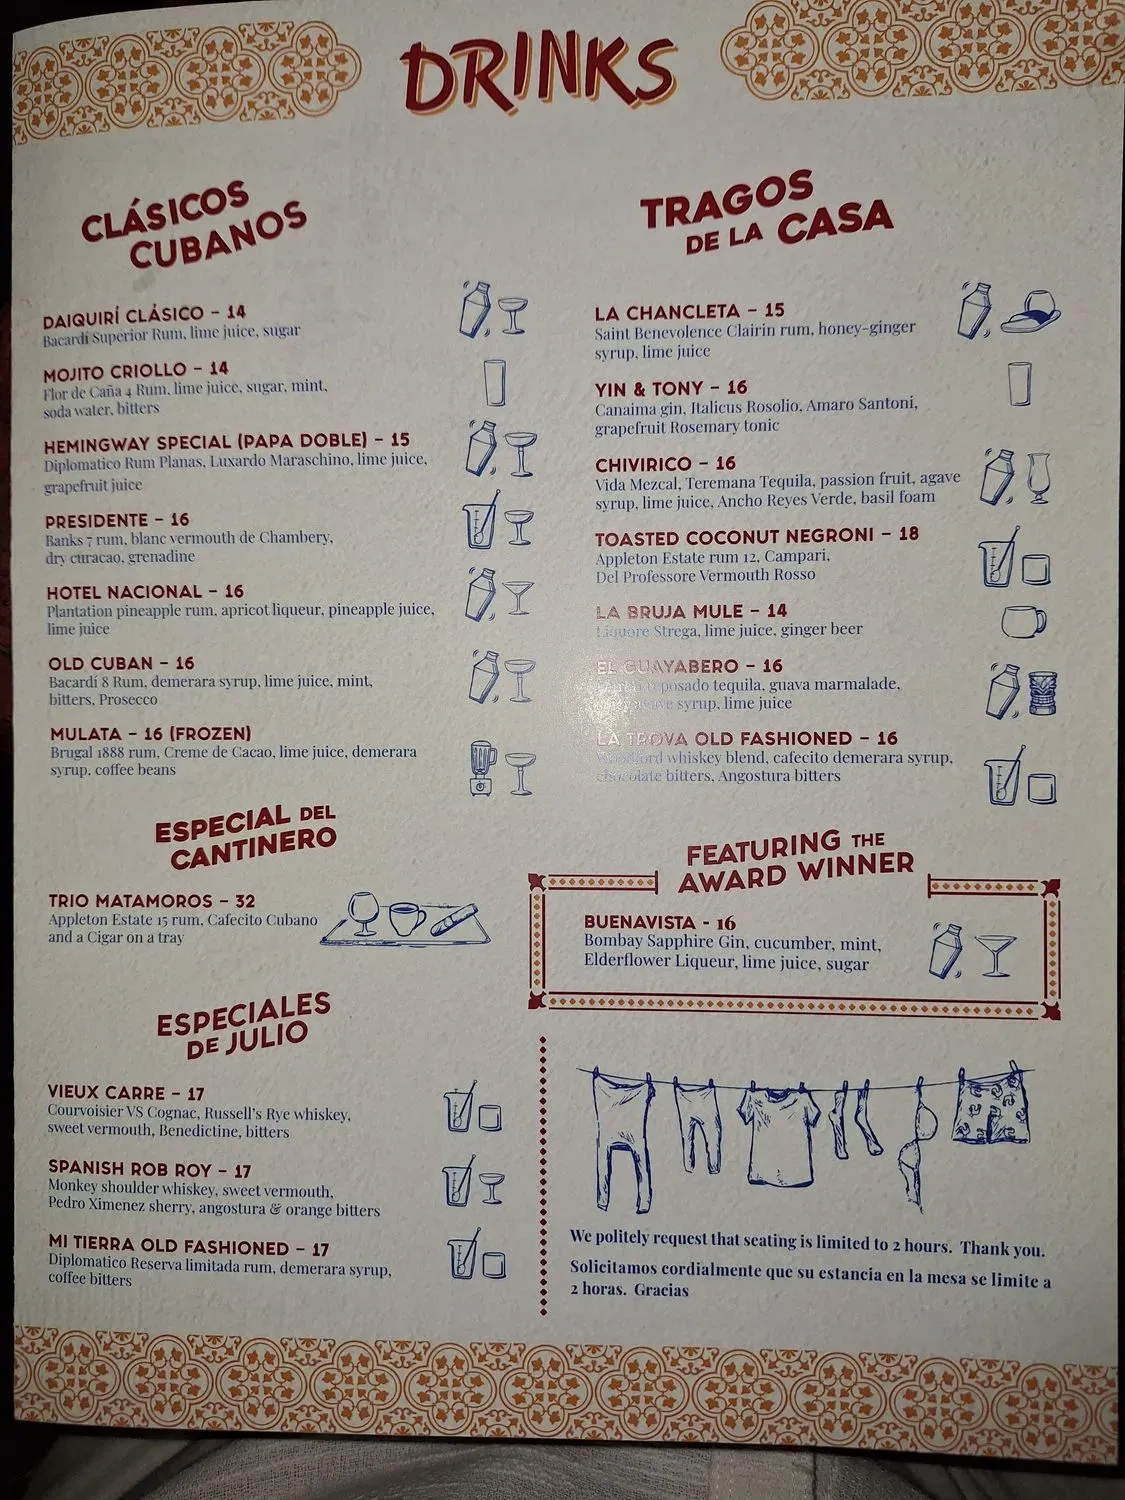 DRINKS
CLÁSICOS
CUBANOS
DAIQUIRÍ CLÁSICO - 14
Bacardí Superior Rum, lime juice, sugar
MOJITO CRIOLLO - 14
Flor de Caña 4 Rum, lime juice, sugar, mint,
soda water, bitters
HEMINGWAY SPECIAL (PAPA DOBLE) - 15
Diplomatico Rum Planas, Luxardo Maraschino, lime juice,
grapefruit juice
PRESIDENTE - 16
Banks 7 rum, blanc vermouth de Chambery,
dry curacao, grenadine
HOTEL NACIONAL - 16
Plantation pineapple rum, apricot liqueur, pineapple juice,
lime juice
OLD CUBAN - 16
Bacardí 8 Rum, demerara syrup, lime juice, mint,
bitters, Prosecco
MULATA - 16 (FROZEN)
Brugal 1888 rum, Creme de Cacao, lime juice, demerara
syrup, coffee beans
ESPECIAL DEL
CANTINERO
TRIO MATAMOROS - 32
Appleton Estate 15 rum, Cafecito Cubano
and a Cigar on a tray
ESPECIALES
DE JULIO
VIEUX CARRE - 17
Courvoisier VS Cognac, Russell's Rye whiskey,
sweet vermouth, Benedictine, bitters
SPANISH ROB ROY - 17
Monkey shoulder whiskey, sweet vermouth,
Pedro Ximenez sherry, angostura & orange bitters
MI TIERRA OLD FASHIONED - 17
Diplomatico Reserva limitada rum, demerara syrup,
coffee bitters
TRAGOS
DE LA CASA
LA CHANCLETA - 15
Saint Benevolence Clairin rum, honey-ginger
syrup, lime juice
YIN & TONY - 16
Canaima gin, Italicus Rosolio, Amaro Santoni,
grapefruit Rosemary tonic
CHIVIRICO - 16
Vida Mezcal, Teremana Tequila, passion fruit, agave
syrup, lime juice, Ancho Reyes Verde, basil foam
TOASTED COCONUT NEGRONI - 18
Appleton Estate rum 12, Campari,
Del Professore Vermouth Rosso
LA BRUJA MULE - 14
Liquore Strega, lime juice, ginger beer
EL GUAYABERO - 16
reposado tequila, guava marmalade,
agave syrup, lime juice
LA TROVA OLD FASHIONED - 16
Woodford whiskey blend, cafecito demerara syrup,
chocolate bitters, Angostura bitters
FEATURING THE
AWARD WINNER
BUENAVISTA - 16
Bombay Sapphire Gin, cucumber, mint,
Elderflower Liqueur, lime juice, sugar
We politely request that seating is limited to 2 hours. Thank you.
Solicitamos cordialmente que su estancia en la mesa se limite a
2 horas. Gracias